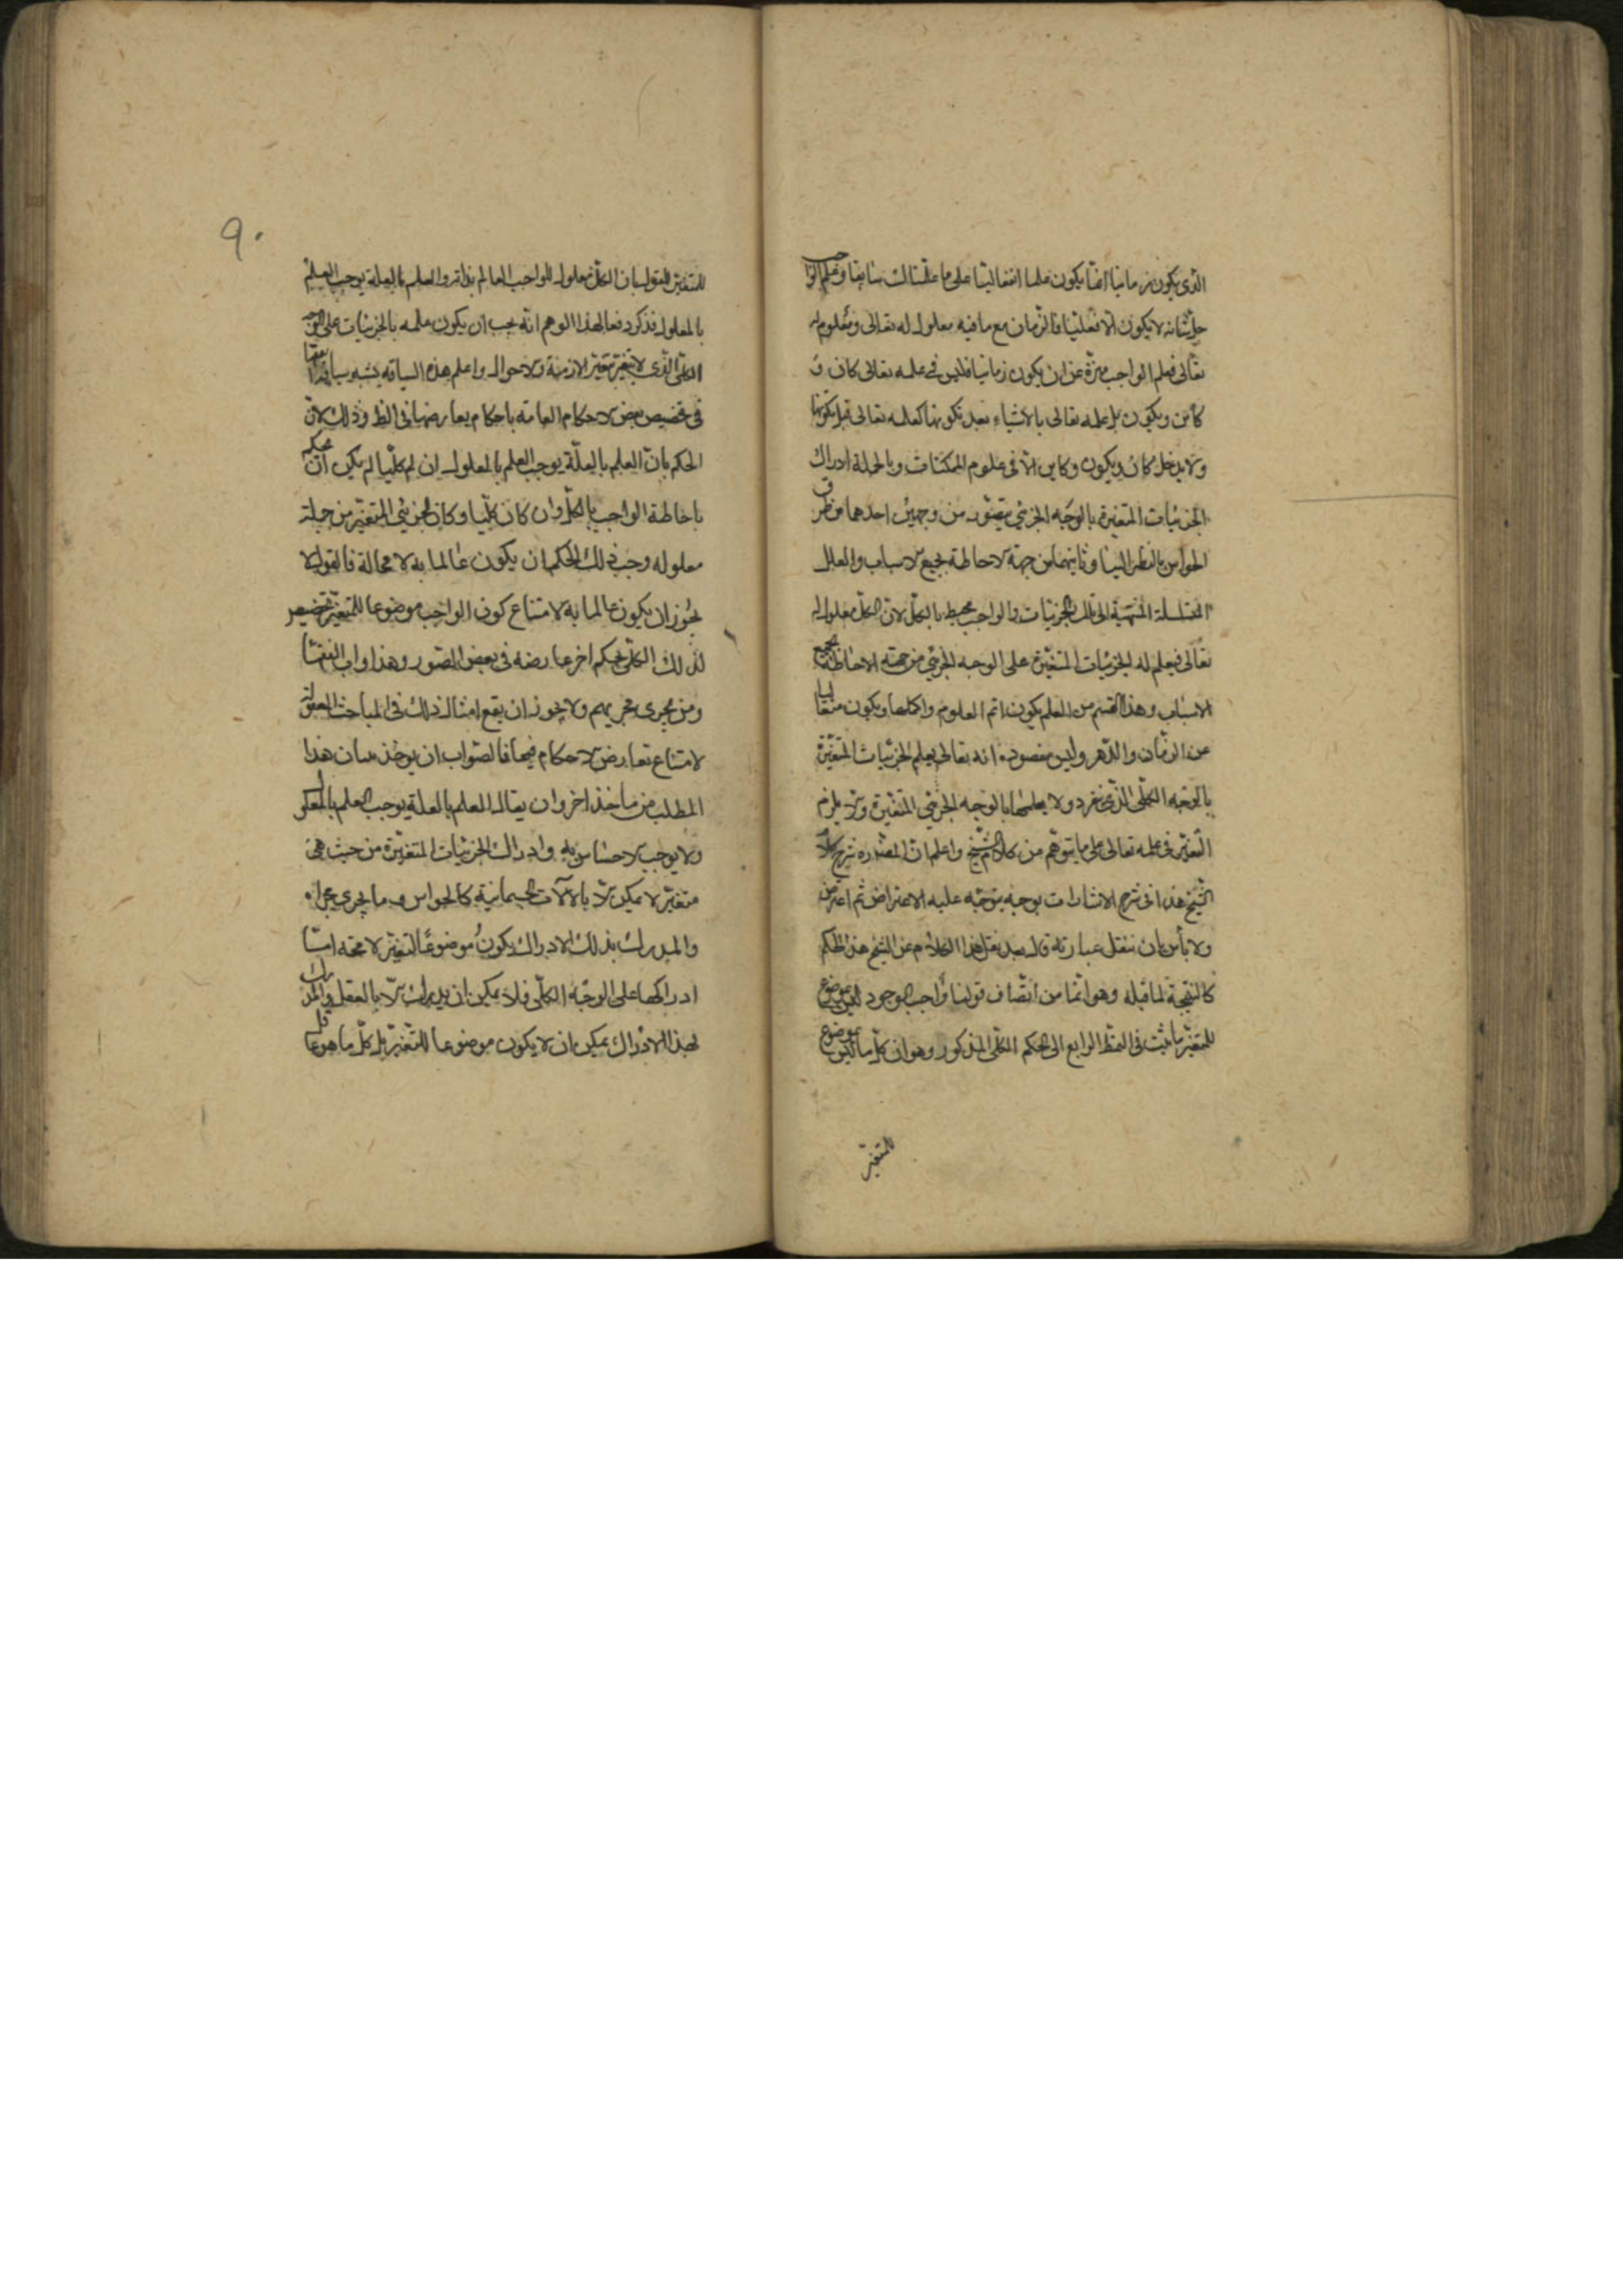 الذى يكون زمانيا انما يكون علما انفعاليا على ما علمناك سابقا وعلم الواجب
جل شانه لا يكون الا فعليا فالزمان مع ما فيه معلول له تعالى ومعلوم له
تعالى فعلم الواجب منزه عن ان يكون زمانيا فليس فى علمه تعالى كان و
كائن ويكون بل علمه تعالى بالاشياء بعد تكونها كعلمه تعالى قبل تكونها
ولا يدخل كان ويكون وكاين الا فى علوم الممكنات وبالجملة ادراك
الجزئيات المتغيرة بالوجه الجزئي يتصور من وجهين احدهما من طرق
الحواس بالنظر الينا وثانيهما من جهة الاحاطة بجميع الاسباب والعلل
المتسلسلة المنتهية الى تلك الجزئيات والواجب محيط بالكل لان الكل معلول له
تعالى فيعلم له الجزئيات المتغيرة على الوجه الجزئي من جهة الاحاطة بجميع
الاسباب وهذا القسم من العلم يكون اتم العلوم واكملها ويكون متعاليا
عن الزمان والدهر وليس مقصوده انه تعالى يعلم الجزئيات المتغيرة
بالوجه الكلى الذى نفرد ولا يعلمها بالوجه الجزئي المتغيرة والا يلزم
التغير فى علمه تعالى على ما يتوهم من كلام الشيخ واعلم ان المصدره شرح كلام
الشيخ هذا فى شرح الاشارات بوجه يتوجه عليه الاعتراض ثم اعترض
ولا بأس بان ننقل عبارته قال بعد نقل هذا الكلام عن الشيخ هذا الحكم
كالنتيجة لما قبله وهو انما من اتصاف قولنا واجب الوجود ليس بموضوع
للتغير ما ثبت فى النمط الرابع الى الحكم الكلى المذكور وهو ان كل ما ليس بموضوع
للتغير
٩٠
للتغير للقول بان الكل معلول للواجب العالم بذاته والعلم بالعلة يوجب العلم
بالمعلول فذكر دفعا لهذا الوهم انه يجب ان يكون علمه بالجزئيات على الوجه
الكلى الذى لا يتغير بتغير الازمنة والاحوال واعلم هذه السياقه يشبه سياقة الفقها
فى تخصيص بعض الاحكام العامة باحكام يعارضها فى الظ وذلك لان
الحكم بان العلم بالعلة يوجب العلم بالمعلول ان لم كليا لم يكن ان يحكم
باحاطة الواجب بالكل وان كان كليا وكان الجزئي المتغير من جملة
معلوله وجب ذلك الحكم ان يكون عالما به لا محالة فالقول لا
يجوز ان يكون عالما به لامتناع كون الواجب موضوعا للتغير تخصيص
لذلك الكلى بحكم اخر عارضه فى بعض الصور وهذا داب الفقها
ومن يجرى مجريهم ولا يجوز ان يقع امثال ذلك فى المباحث المعقولة
لامتناع تعارض الاحكام فيها فالصواب ان يوخذ بيان هذا
المطلب من ماخذ اخر وان يقال العلم بالعلة يوجب العلم بالمعلول
ولا يوجب الاحساس به وادراك الجزئيات المتغيرة من حيث هى
متغير لا يمكن الا بالالات الجسمانية كالحواس وما يجرى مجراه
والمدرك بذلك الادراك يكون موضوعا للتغير لا محة اما
ادراكها على الوجه الكلى فلا يمكن ان يدرك الا بالعقل والمدرك
لهذا الادراك يمكن ان لا يكون موضوعا للتغير بل كل ما هو عاقل